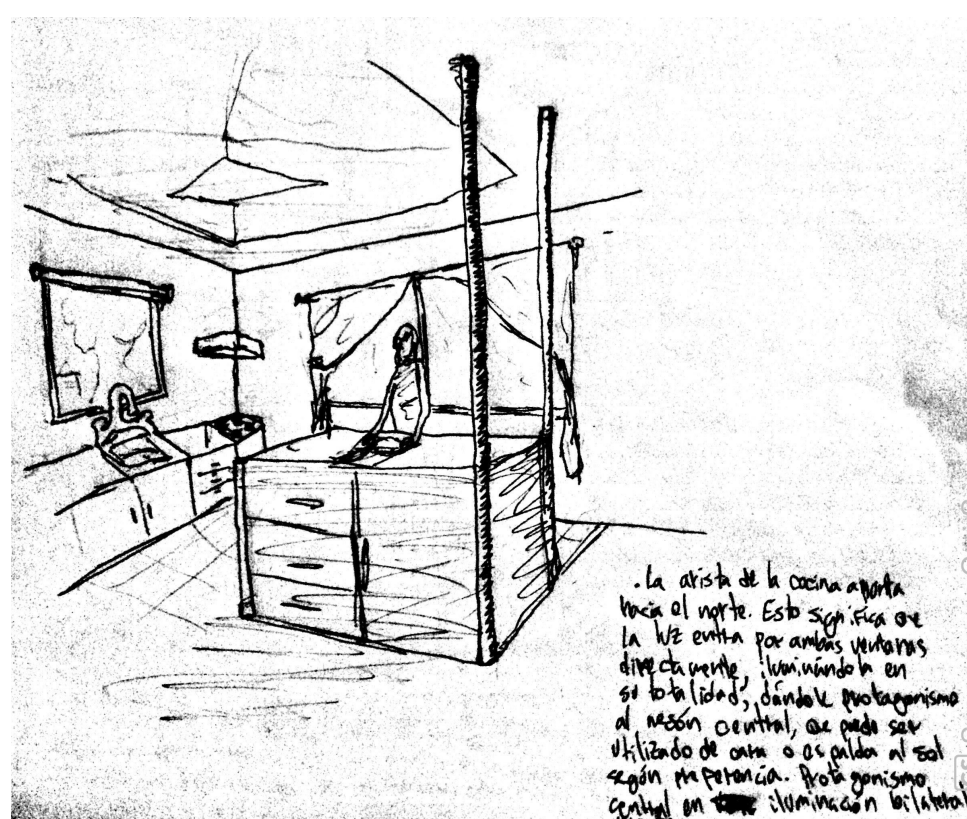 . La arista de la cocina aporta
hacia el norte. Esto significa que
la luz entra por ambas ventanas
directamente, iluminándola en
su totalidad, dándole protagonismo
al mesón central, que puede ser
utilizado de cara o espalda al sol
según preferencia. Protagonismo
central en iluminación bilateral.